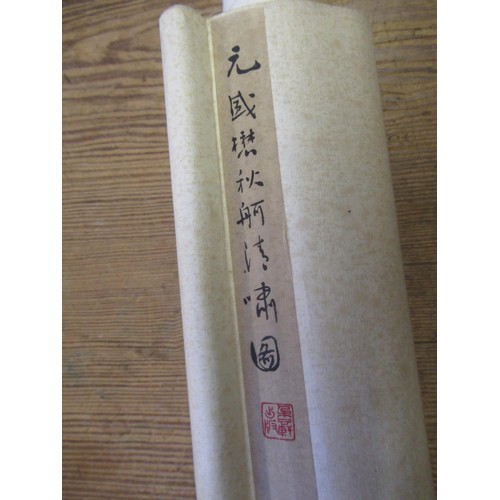 元盛懋秋舸清嘯圖